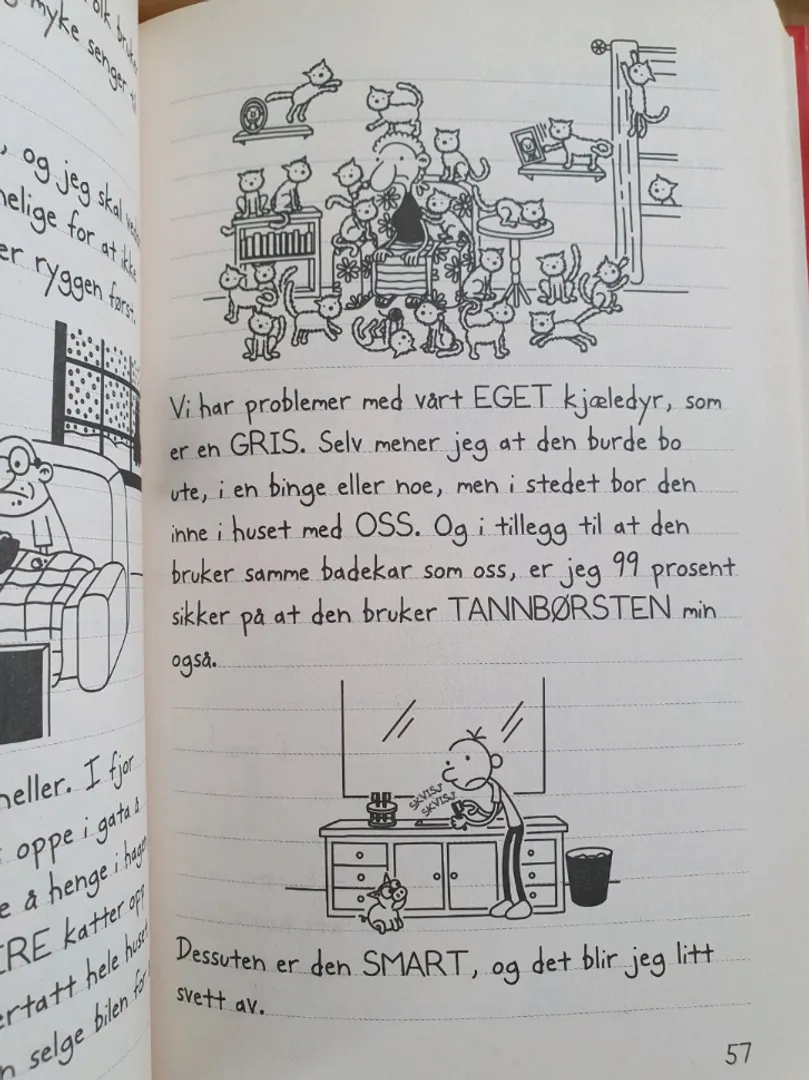 myke senger ti
, og jeg skal
for at ikke
er ryggen først.
I fjor
oppe i gata å
å henge i hagen
katter opp
hele huset
selge bilen for
Vi har problemer med vårt EGET kjæledyr, som
er en GRIS. Selv mener jeg at den burde bo
ute, i en binge eller noe, men i stedet bor den
inne i huset med OSS. Og i tillegg til at den
bruker samme badekar som oss, er jeg 99 prosent
sikker på at den bruker TANNBØRSTEN min
også.
SKVISJ
SKVISJ
Dessuten er den SMART, og det blir jeg litt
svett av.
57